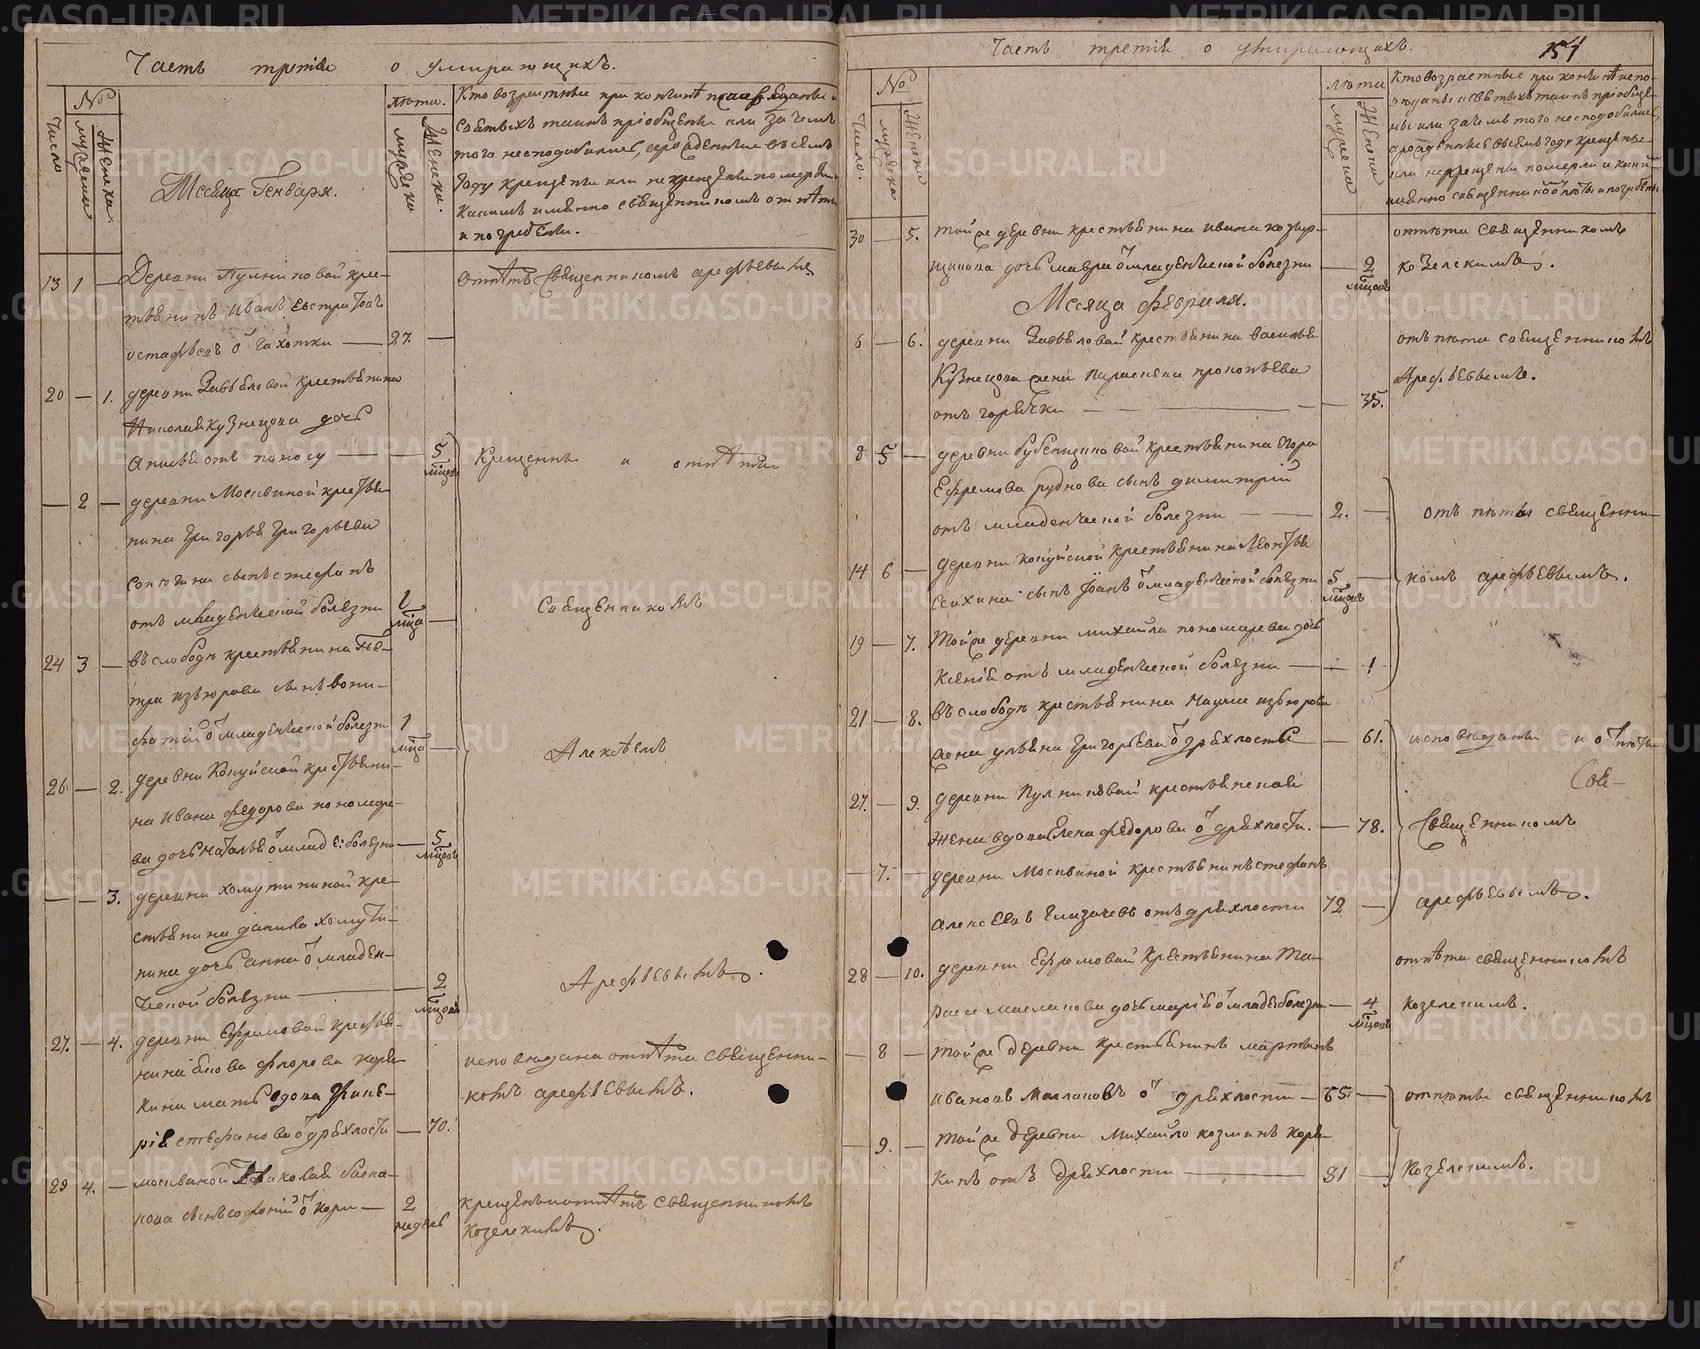 Часть третiя о умирающихъ.
Число
№
мужеска
женска.
Месяца Генваря.
лѣта.
мужска
женска.
Кто возрастные при кончинѣ исповѣданы и
святыхъ таинъ прiобщены или зачемъ
того несподобились, а рожденные въ семъ
году крещены или некрещены померли
и какимъ имянно священникомъ отпѣты
и погребены.
13 1 — Деревни Пулниковой кре-
стьянинъ Иванъ Евстратовъ
остафьевъ о чахотки — 27. —
отпѣтъ священникомъ арефьевымъ
20 — 1. деревни Завьяловой крестьянина
Николая Кузнецова дочь
Анисья отъ поносу — — 5 мцовъ
Крещенны и отпѣты
— 2 — деревни Москвиной крестья
нина Григорья Григорьева
сынъ стефанъ
отъ младенческой болезни 1 мца —
Священникомъ
24 3 — въ слободѣ крестьянина Пе-
тра изгюрова сынъ вони-
фатiй о младенческой болезни 1 мца —
Алексѣемъ
26 — 2. деревни Конуйской крестьяни-
на Ивана Федорова пономаре-
ва дочь Наталья о млад: болезни — 5 мцовъ
— — 3. деревни хомутининой кре-
стьянина данила хомути-
нина дочь анна о младен-
ческой болезни — — 2 мцовъ
Арефьевымъ.
27. — 4. деревни Ефремовой крестья-
нина Якова флорова коря-
кина мать вдова
стефанова о дряхлости — 70.
исповѣдана отпѣта священни-
комъ арефьевымъ.
29 4. — москвиной Николая
сынъ софонiй о кори — 2 недель
крещенъ и отпѣтъ священникомъ
Козелскимъ.
Часть третiя о умирающихъ.
151
Число.
№
мужеска
женска
лѣта
мужеска
женска
Кто возрастные при кончинѣ испо-
вѣданы и святыхъ таинъ прiобще-
ны или зачемъ того несподобились,
а рожденные въ семъ году крещены
или некрещены померли и какимъ
имянно священникомъ отпѣты и погребены
30 — 5. той же деревни крестьянина ивана козыр-
щикова дочь мавра о младенческой болезни — 2 мцовъ
отпѣта священникомъ
козелскимъ.
Месяца февраля.
6 — 6. деревни Завьяловой крестьянина василья
Кузнецова жена параскева прокопьева
отъ горячки — — — 35.
отпѣта священникомъ
Арефьевымъ.
8 5 — деревни бубенщиковой крестьянина Егора
Ефремова руднова сынъ димитрiй
отъ младенческой болезни — — 2. —
отпѣты священни-
14 6 — деревни конуйской крестьянина Леонтья
сынъ Iоанъ о младенческой болезни 5 мцовъ —
комъ арефьевымъ.
19 — 7. Той же деревни михайла пономарева дочь
Ксенiя отъ младенческой болезни — — 1
21 — 8. въ слободѣ крестьянина Наума изгюрова
жена ульяна Григорьева о дряхлости — 61.
исповѣданы и отпѣты
Свя-
27. — 9. деревни Пулниковой крестьянской
жены вдова Елена федорова о дряхлости. — 78.
Священникомъ
— 7. — деревни Москвиной крестьянинъ стефанъ
алексеевъ Глизачевъ отъ дряхлости 72 —
арефьевымъ.
28 — 10. деревни Ефремовой Крестьянина
Масланова дочь марiя о младе: болезни — 4 мцовъ
отпѣта священникомъ
козелскимъ.
— 8 — той же деревни крестьянинъ мартынъ
ивановъ Маслановъ о дряхлости — 65. —
отпѣты священникомъ
— 9. — той же деревни Михайло козминъ коря-
кинъ отъ дряхлости — 81 —
Козелскимъ.